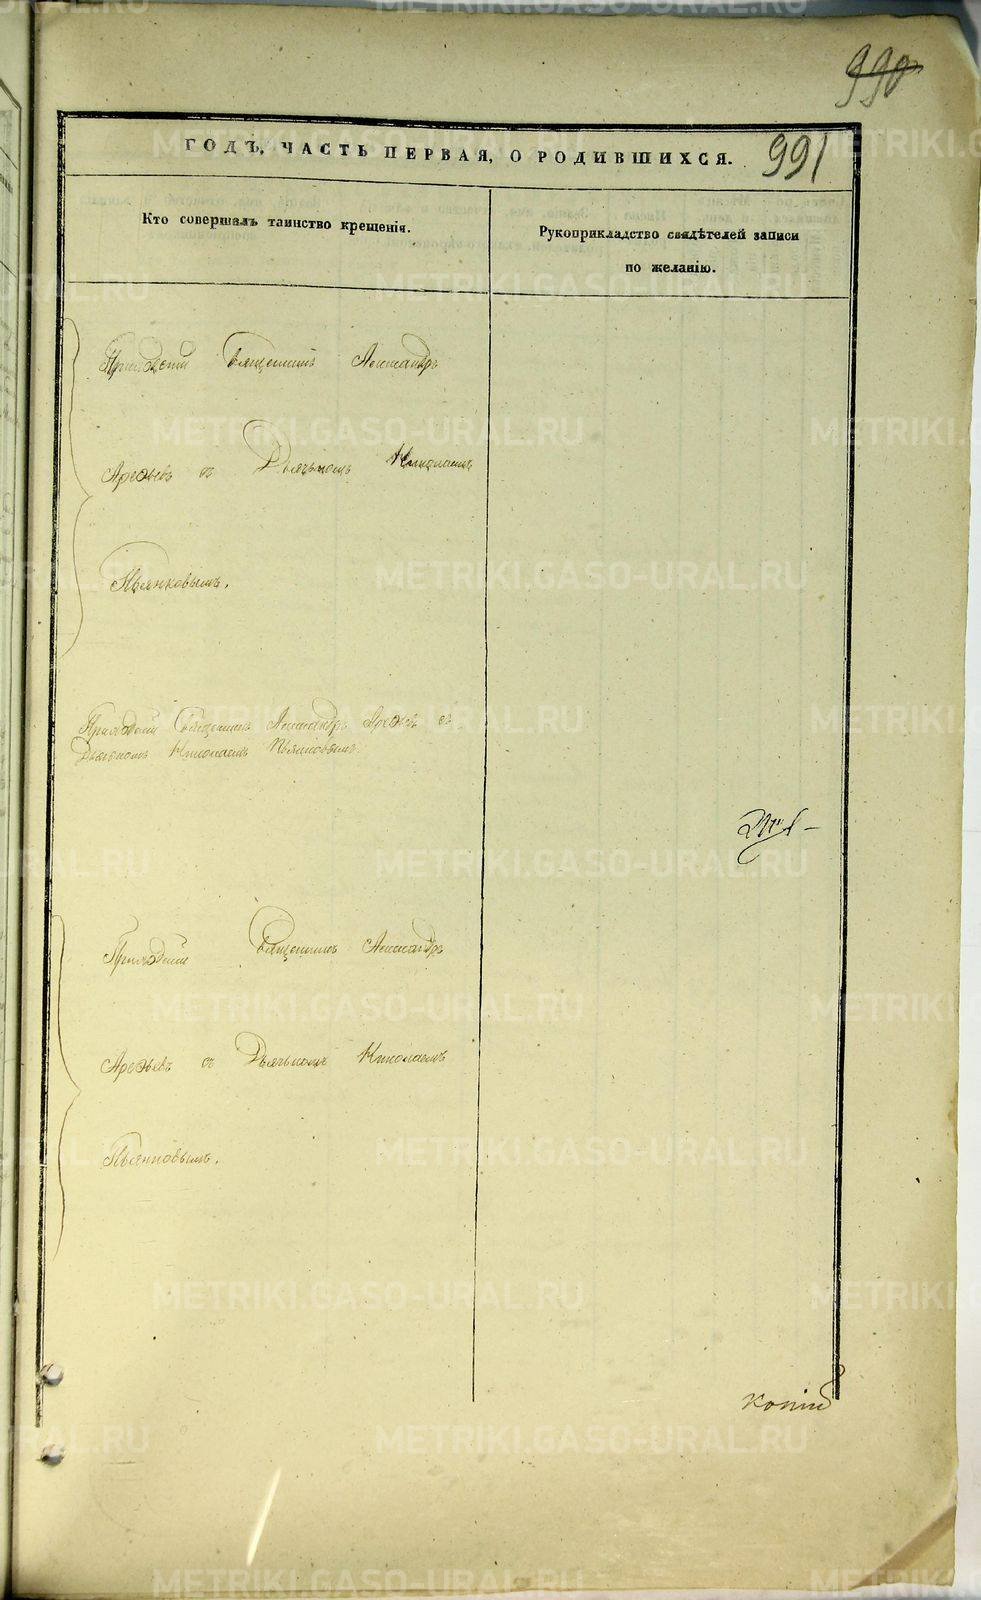 990
991
ГОДЪ, ЧАСТЬ ПЕРВАЯ, О РОДИВШИХСЯ.
Кто совершалъ таинство крещенія.
Рукоприкладство свидѣтелей записи
по желанію.
Приходскій Священникъ Александръ
Арефьевъ съ Дьячкомъ Николаемъ
Пьянковымъ.
Приходскій Священникъ Александръ Арефьевъ съ
Дьячкомъ Николаемъ Пьянковымъ.
Приходскій Священникъ Александръ
Арефьевъ съ Дьячкомъ Николаемъ
Пьянковымъ.
METRIKI.GASO-URAL.RU